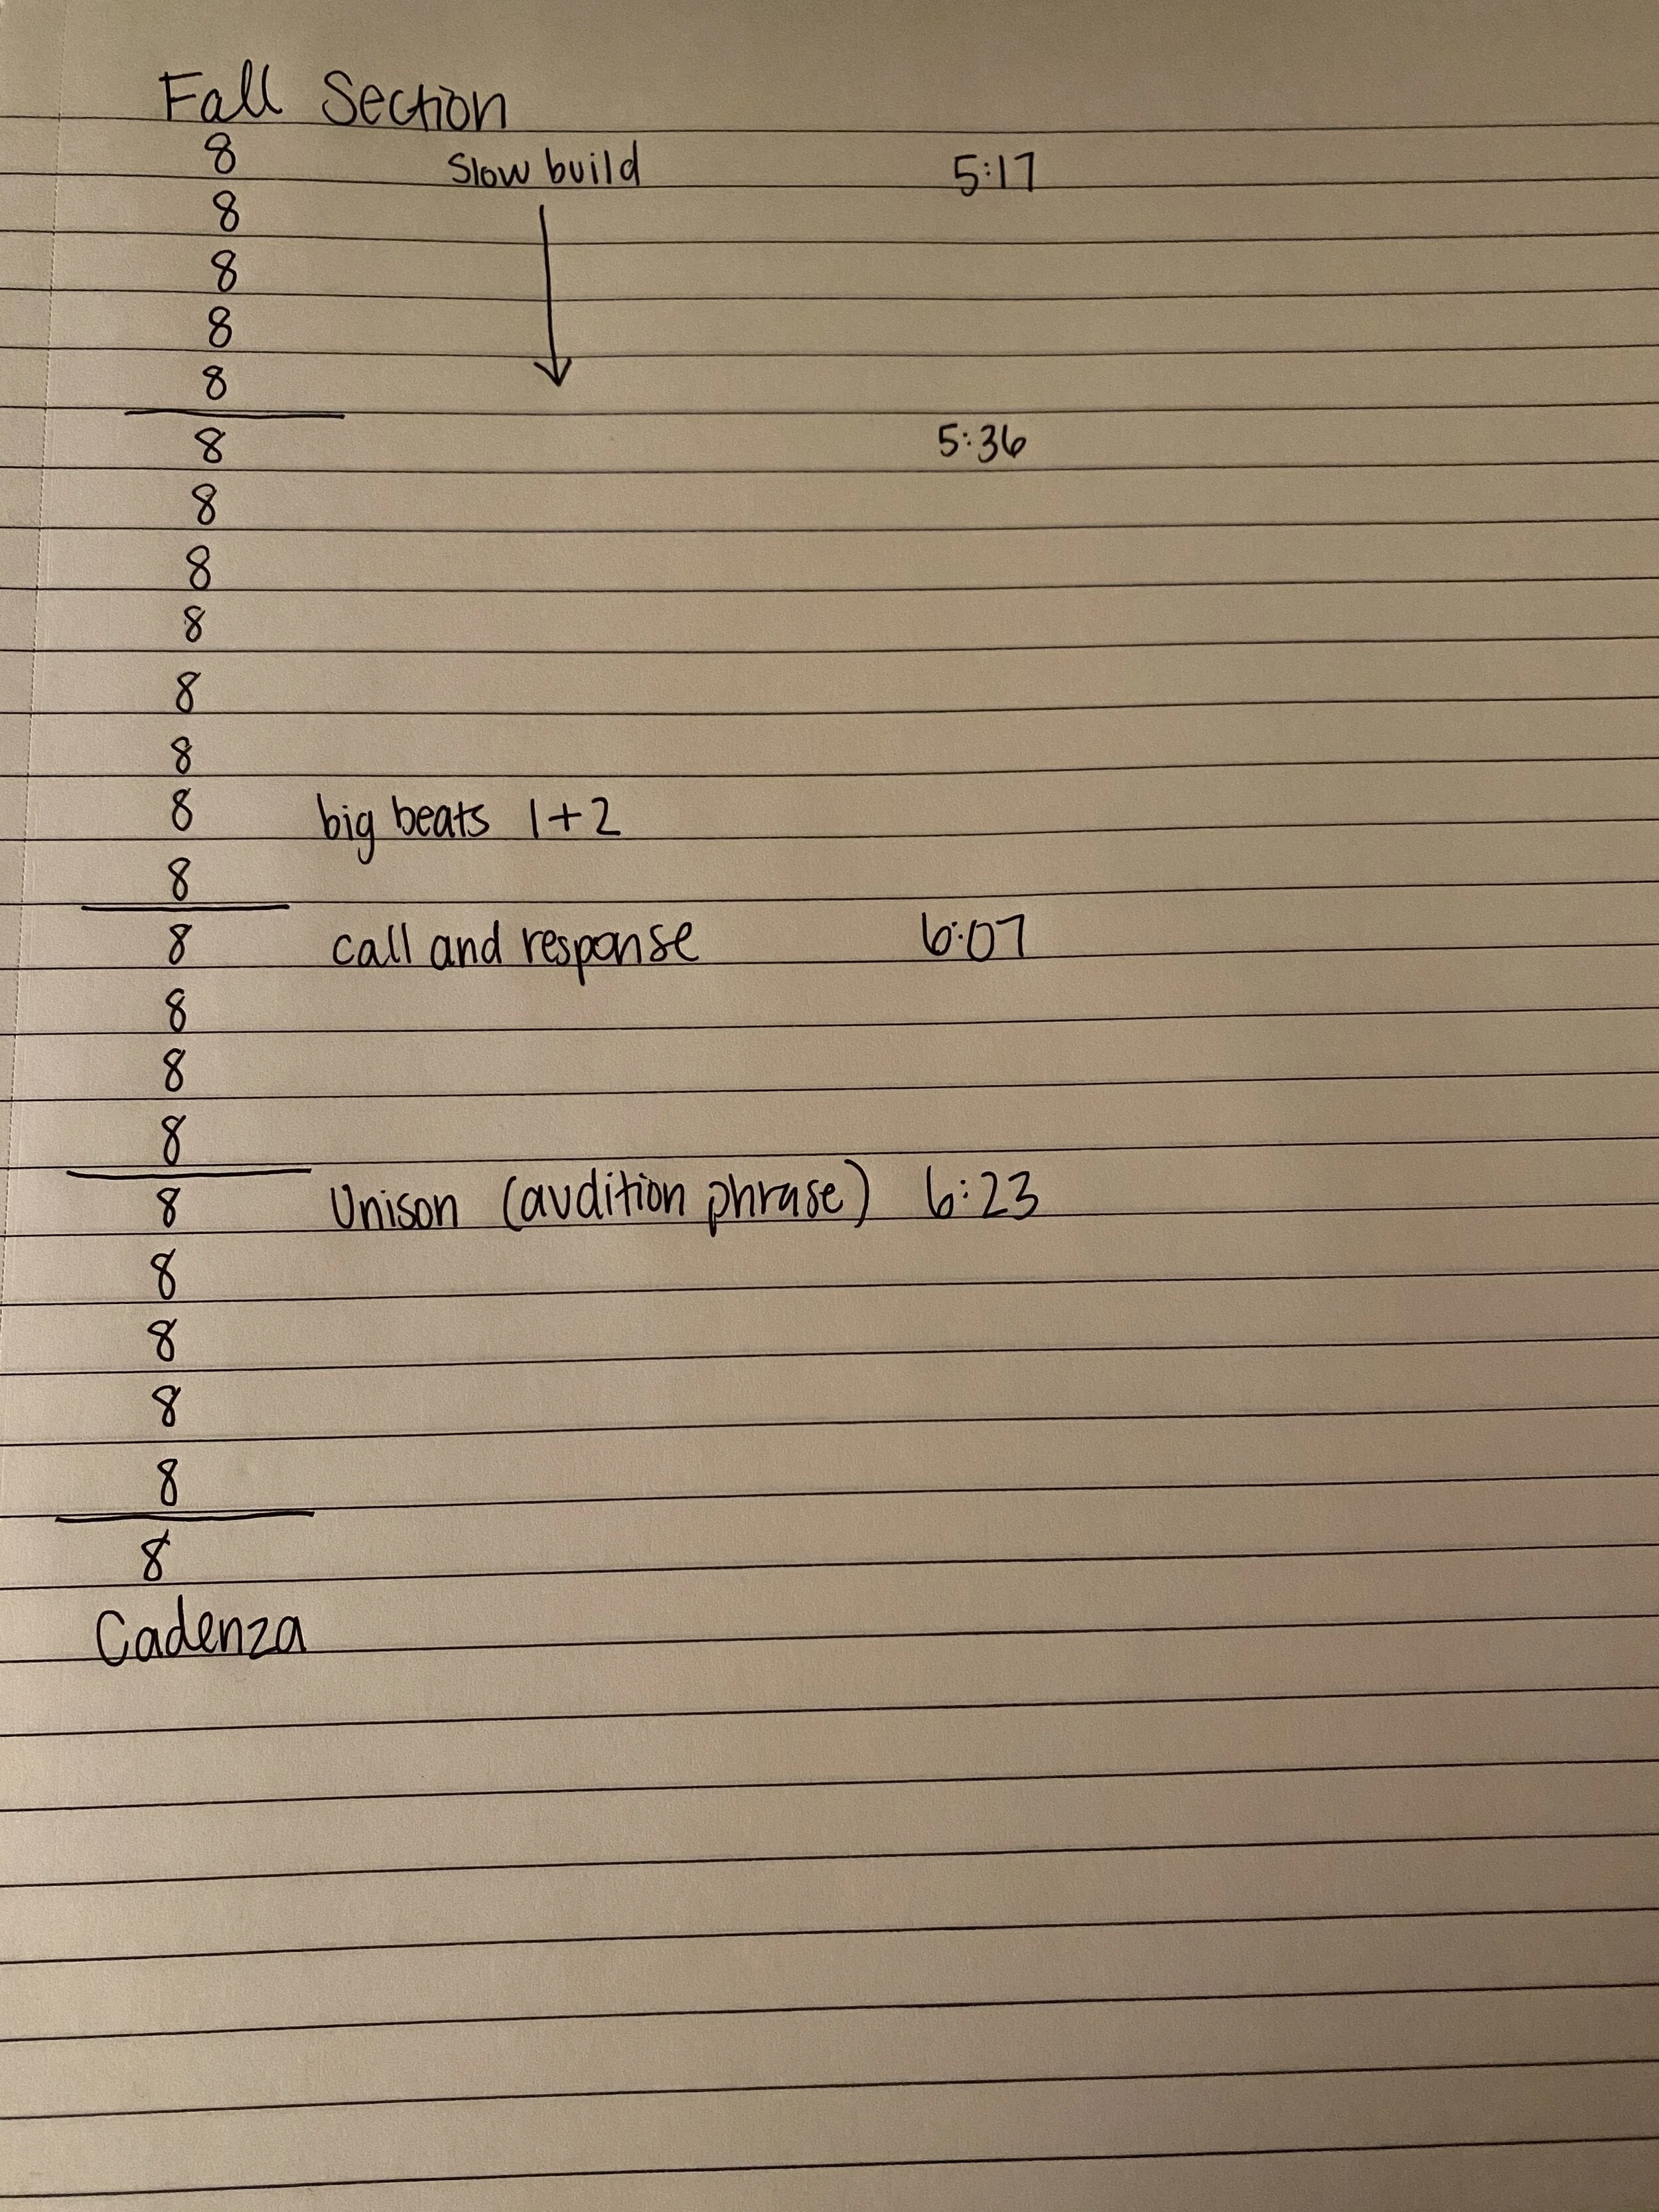 Fall Section
8 Slow build 5:17
8
8
8
8
8 5:36
8
8
8
8
8
8 big beats 1+2
8
8 call and response 6:07
8
8
8
8 Unison (audition phrase) 6:23
8
8
8
8
8
Cadenza